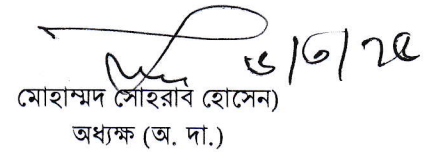 ৬/৩/২৫
মোহাম্মদ সোহরাব হোসেন)
অধ্যক্ষ (অ. দা.)